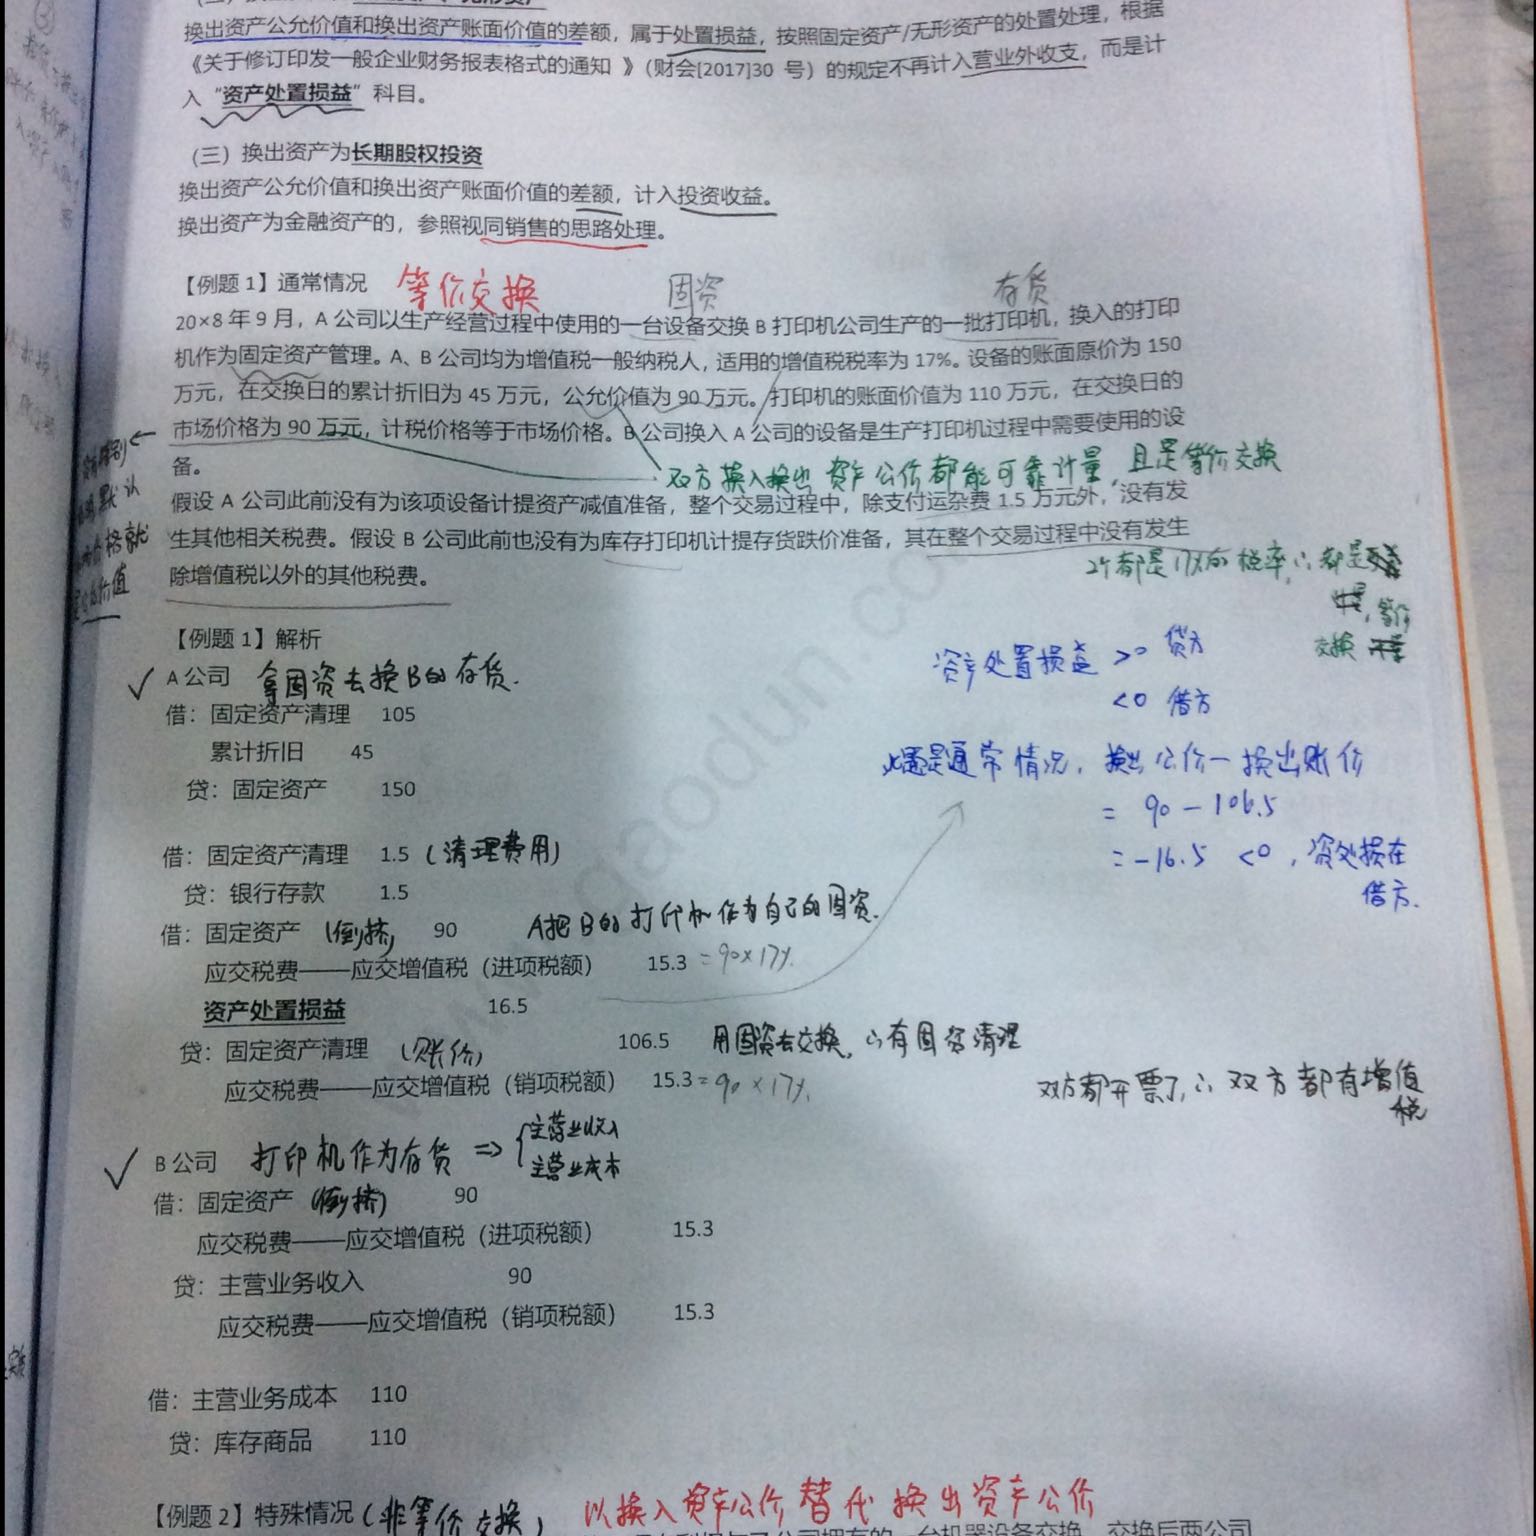 换出资产公允价值和换出资产账面价值的差额，属于处置损益，按照固定资产/无形资产的处置处理，根据
《关于修订印发一般企业财务报表格式的通知 》（财会[2017]30 号）的规定不再计入营业外收支，而是计
入“资产处置损益”科目。
（三）换出资产为长期股权投资
换出资产公允价值和换出资产账面价值的差额，计入投资收益。
换出资产为金融资产的，参照视同销售的思路处理。
【例题 1】通常情况 等价交换 固资 存货
20×8 年 9 月，A 公司以生产经营过程中使用的一台设备交换 B 打印机公司生产的一批打印机，换入的打印
机作为固定资产管理。A、B 公司均为增值税一般纳税人，适用的增值税税率为 17%。设备的账面原价为 150
万元，在交换日的累计折旧为 45 万元，公允价值为 90 万元。打印机的账面价值为 110 万元，在交换日的
市场价格为 90 万元，计税价格等于市场价格。B 公司换入 A 公司的设备是生产打印机过程中需要使用的设
备。
双方换入换出资产公价都能可靠计量，且是等价交换
假设 A 公司此前没有为该项设备计提资产减值准备，整个交易过程中，除支付运杂费 1.5 万元外，没有发
生其他相关税费。假设 B 公司此前也没有为库存打印机计提存货跌价准备，其在整个交易过程中没有发生
除增值税以外的其他税费。
2个都是17%的税率，∴都是
等价
交换
默认
价格就
价值
【例题 1】解析
A 公司 拿固资去换B的存货.
借：固定资产清理 105
累计折旧 45
贷：固定资产 150
资产处置损益 >0 贷方
<0 借方
此题是通常情况，换出公价－换出账价
= 90 - 106.5
= -16.5 <0，资处损在
借方.
借：固定资产清理 1.5 (清理费用)
贷：银行存款 1.5
借：固定资产 (倒挤) 90 A把B的打印机作为自己的固资.
应交税费——应交增值税（进项税额） 15.3 = 90×17%.
资产处置损益 16.5
贷：固定资产清理 (账价) 106.5 用固资去交换，∴有固资清理
应交税费——应交增值税（销项税额） 15.3 = 90×17%.
双方都开票了，∴双方都有增值
税
B 公司 打印机作为存货 => { 主营业收入
主营业成本
借：固定资产 (倒挤) 90
应交税费——应交增值税（进项税额） 15.3
贷：主营业务收入 90
应交税费——应交增值税（销项税额） 15.3
借：主营业务成本 110
贷：库存商品 110
【例题 2】特殊情况 (非等价交换) 以换入资产公价替代换出资产公价